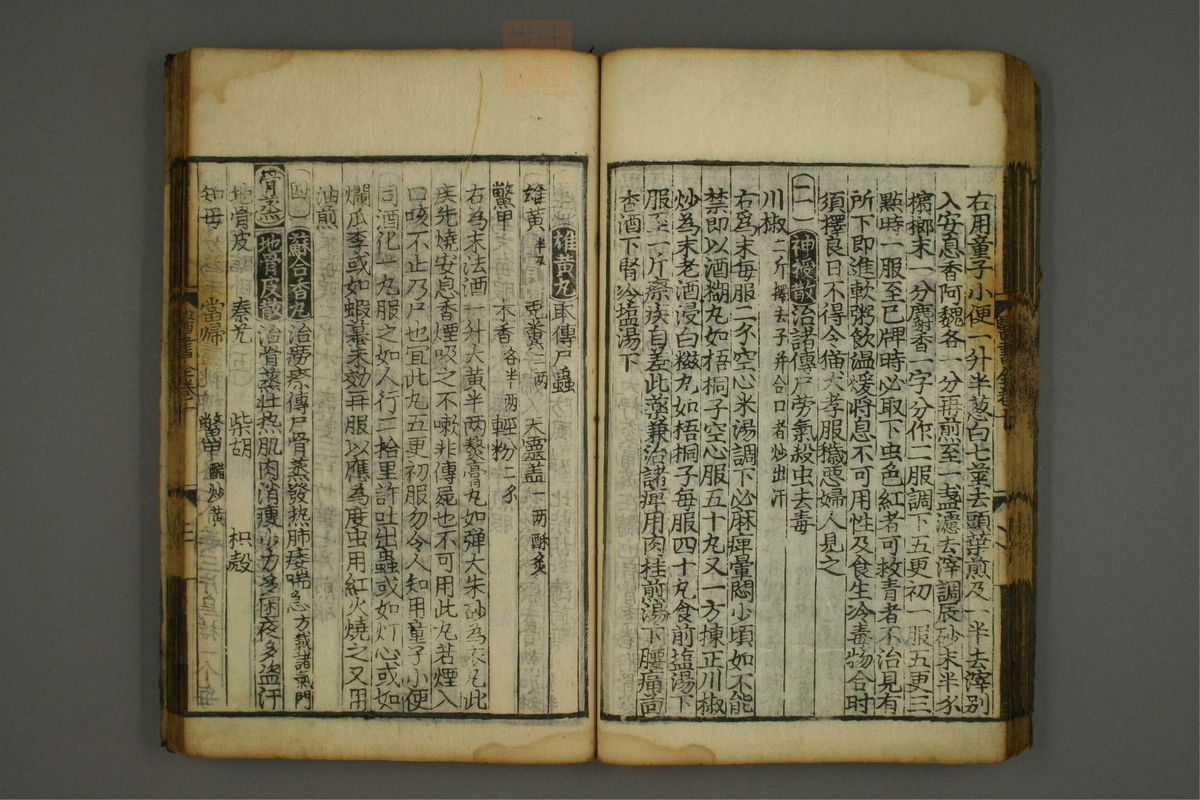 右用童子小便一升半葱白七茎去頭葉煎及一半去滓别
入安息香阿魏各一分再煎至一盞濾去滓調辰砂末半分
檳榔末一分麝香一字分作二服調下五更初一服五更三
點時一服至巳牌時必取下虫色紅者可救青者不治見有
所下即進軟粥飲温煖將息不可用性及食生冷毒物合時
須擇良日不得令猫犬孝服穢惡婦人見之
二 神授散 治諸傳尸劳氣殺虫去毒
川椒 二斤擇去子并合口者炒出汗
右為末每服二分空心米湯調下必麻痺暈悶少頃如不能
禁即以酒糊丸如梧桐子空心服五十丸又一方揀正川椒
炒為末老酒浸白糍丸如梧桐子每服四十丸食前塩湯下
服至一斤瘵疾自差此藥兼治諸痺用肉桂煎湯下腰痛茴
香酒下腎冷塩湯下
雄黄丸 取傳尸蟲
雄黄 半两 兎糞 二两 天靈蓋 一两酥炙
鱉甲 木香 各半两 輕粉 二分
右為末法酒一升大黄半两熬膏丸如弹大朱砂為衣凡此
疾先燒安息香煙吸之不嗽非傳屍也不可用此丸若煙入
口咳不止乃尸也宜此丸五更初服勿令人知用童子小便
同酒化一丸服之如人行二拾里許吐出蟲或如灯心或如
爛瓜李或如蝦蟇未効再服以應為度虫用紅火燒之又用
油煎
四 蘇合香丸 治勞瘵傳尸骨蒸發热肺痿喘急 方載諸氣門
骨蒸 地骨皮散 治骨蒸壮热肌肉消瘦少力多困夜多盗汗
地骨皮 秦艽 柴胡 枳殼
知母 當歸 鱉甲 醋炒黄
醫書 全卷十